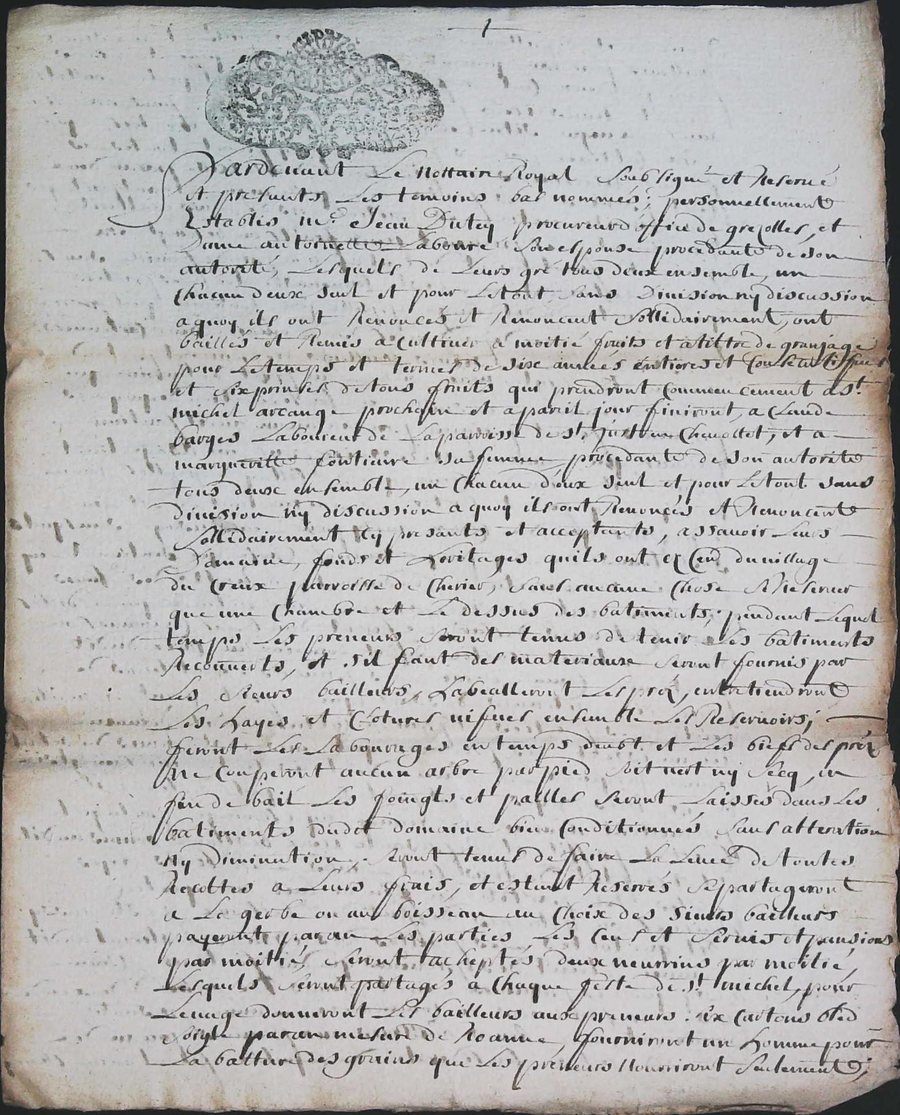 1
Pardevant Le Nottaire Royal soubsigné et Reservé
et presants Les temoins bas nommés; personnellement
Establis mr. Jean Dutey procureur d'office de grezolles, et
Dame antoinette Laboure son espouse procedante de son
autorité, Lesquels de Leurs gré tous deux ensemble, un
Chacun deux seul et pour Le tout sans Division ny discussion
a quoy ils ont Renoncés et Renoncent sollidairement, ont
baillés et Remis a Cultiver a moitié fruits et a tittre de granjage
pour Le temps et terme de six années entieres et Consecutifves
et six prinses de tous fruits qui prendront Commencement a st.
michel arcange prochain et a pareil jour finiront, a Claude
barges Laboureur de La parroisse de st. Just en Chevollet, et a
margueritte sa femme, procedante de son autorité
tous deux ensemble, un Chacun d'eux seul et pour Le tout sans
division ny discussion a quoy ils ont Renoncés et Renoncent
sollidairement Cy presants et acceptants, assavoir Leurs
Domaine, fonds et heritages quils ont du village
du Creux parroisse de Cherier, sans aucune Chose se Reserver
que une Chambre et Le dessus des batiments; pendant Lequel
temps Les preneurs seront tenus de tenir Les batiments
Recouverts, et s'il faut des materiaux seront fournis par
Les sieurs bailleurs, Les prez, entretiendront
Les hayes et Clotures vifves ensemble Les Reservoirs;
feront Les Labourages en temps deubt et Les biefs des prez
ne Couperont aucun arbre par pied soit vert ny secq, en
fin de bail Les foingts et pailles seront Laissés dans Les
batiments dudt domaine bien Conditionnés sans alteration
ny diminution, seront tenus de faire La Levée de toutes
Recoltes a Leurs frais, et estant Reservés se partageront
a La gerbe ou au boisseau au Choix des sieurs bailleurs
payeront par an Les parties Les Cens et servis et pansions
par moitié, seront acheptés deux neurrins par moitié
Lesquels seront partagés a Chaque feste de st. michel, pour
Lenage donneront Les bailleurs aux preneurs six Cartons bled
seigle par an mesure de Roanne, fourniront un homme pour
La batture des grains que Les preneurs Nourriront seulement;